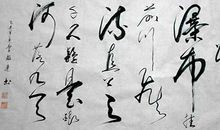 瀑布挂
前川飞
流直下三
千尺疑是银
河落九天